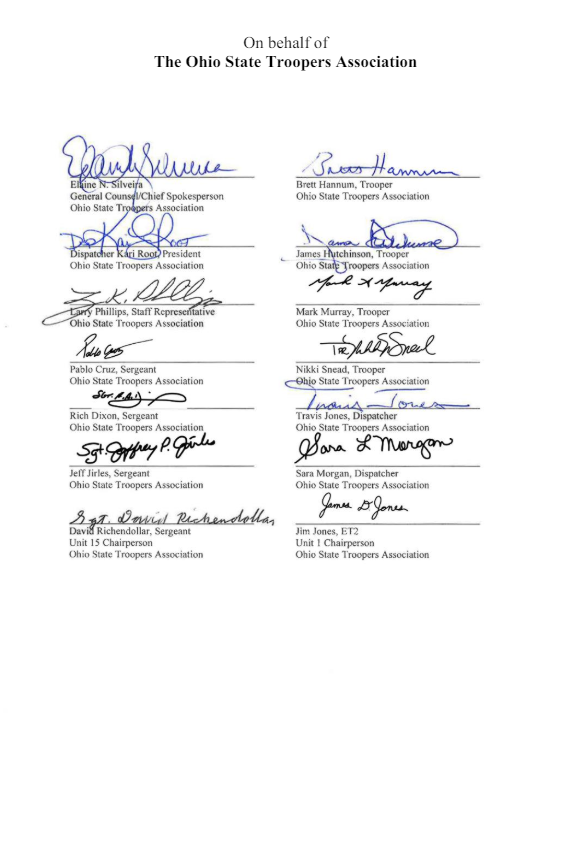 On behalf of
The Ohio State Troopers Association
Elaine N. Silveira
General Counsel/Chief Spokesperson
Ohio State Troopers Association
Dispatcher Kari Root, President
Ohio State Troopers Association
Larry Phillips, Staff Representative
Ohio State Troopers Association
Pablo Cruz
Pablo Cruz, Sergeant
Ohio State Troopers Association
Rich Dixon, Sergeant
Ohio State Troopers Association
Sgt. Jeffrey P. Jirles
Jeff Jirles, Sergeant
Ohio State Troopers Association
Sgt. David Richendollar
David Richendollar, Sergeant
Unit 15 Chairperson
Ohio State Troopers Association
Brett Hannum
Brett Hannum, Trooper
Ohio State Troopers Association
James Hutchinson, Trooper
Ohio State Troopers Association
Mark A Murray
Mark Murray, Trooper
Ohio State Troopers Association
Nikki Snead, Trooper
Ohio State Troopers Association
Travis Jones
Travis Jones, Dispatcher
Ohio State Troopers Association
Sara L Morgan
Sara Morgan, Dispatcher
Ohio State Troopers Association
James D Jones
Jim Jones, ET2
Unit 1 Chairperson
Ohio State Troopers Association